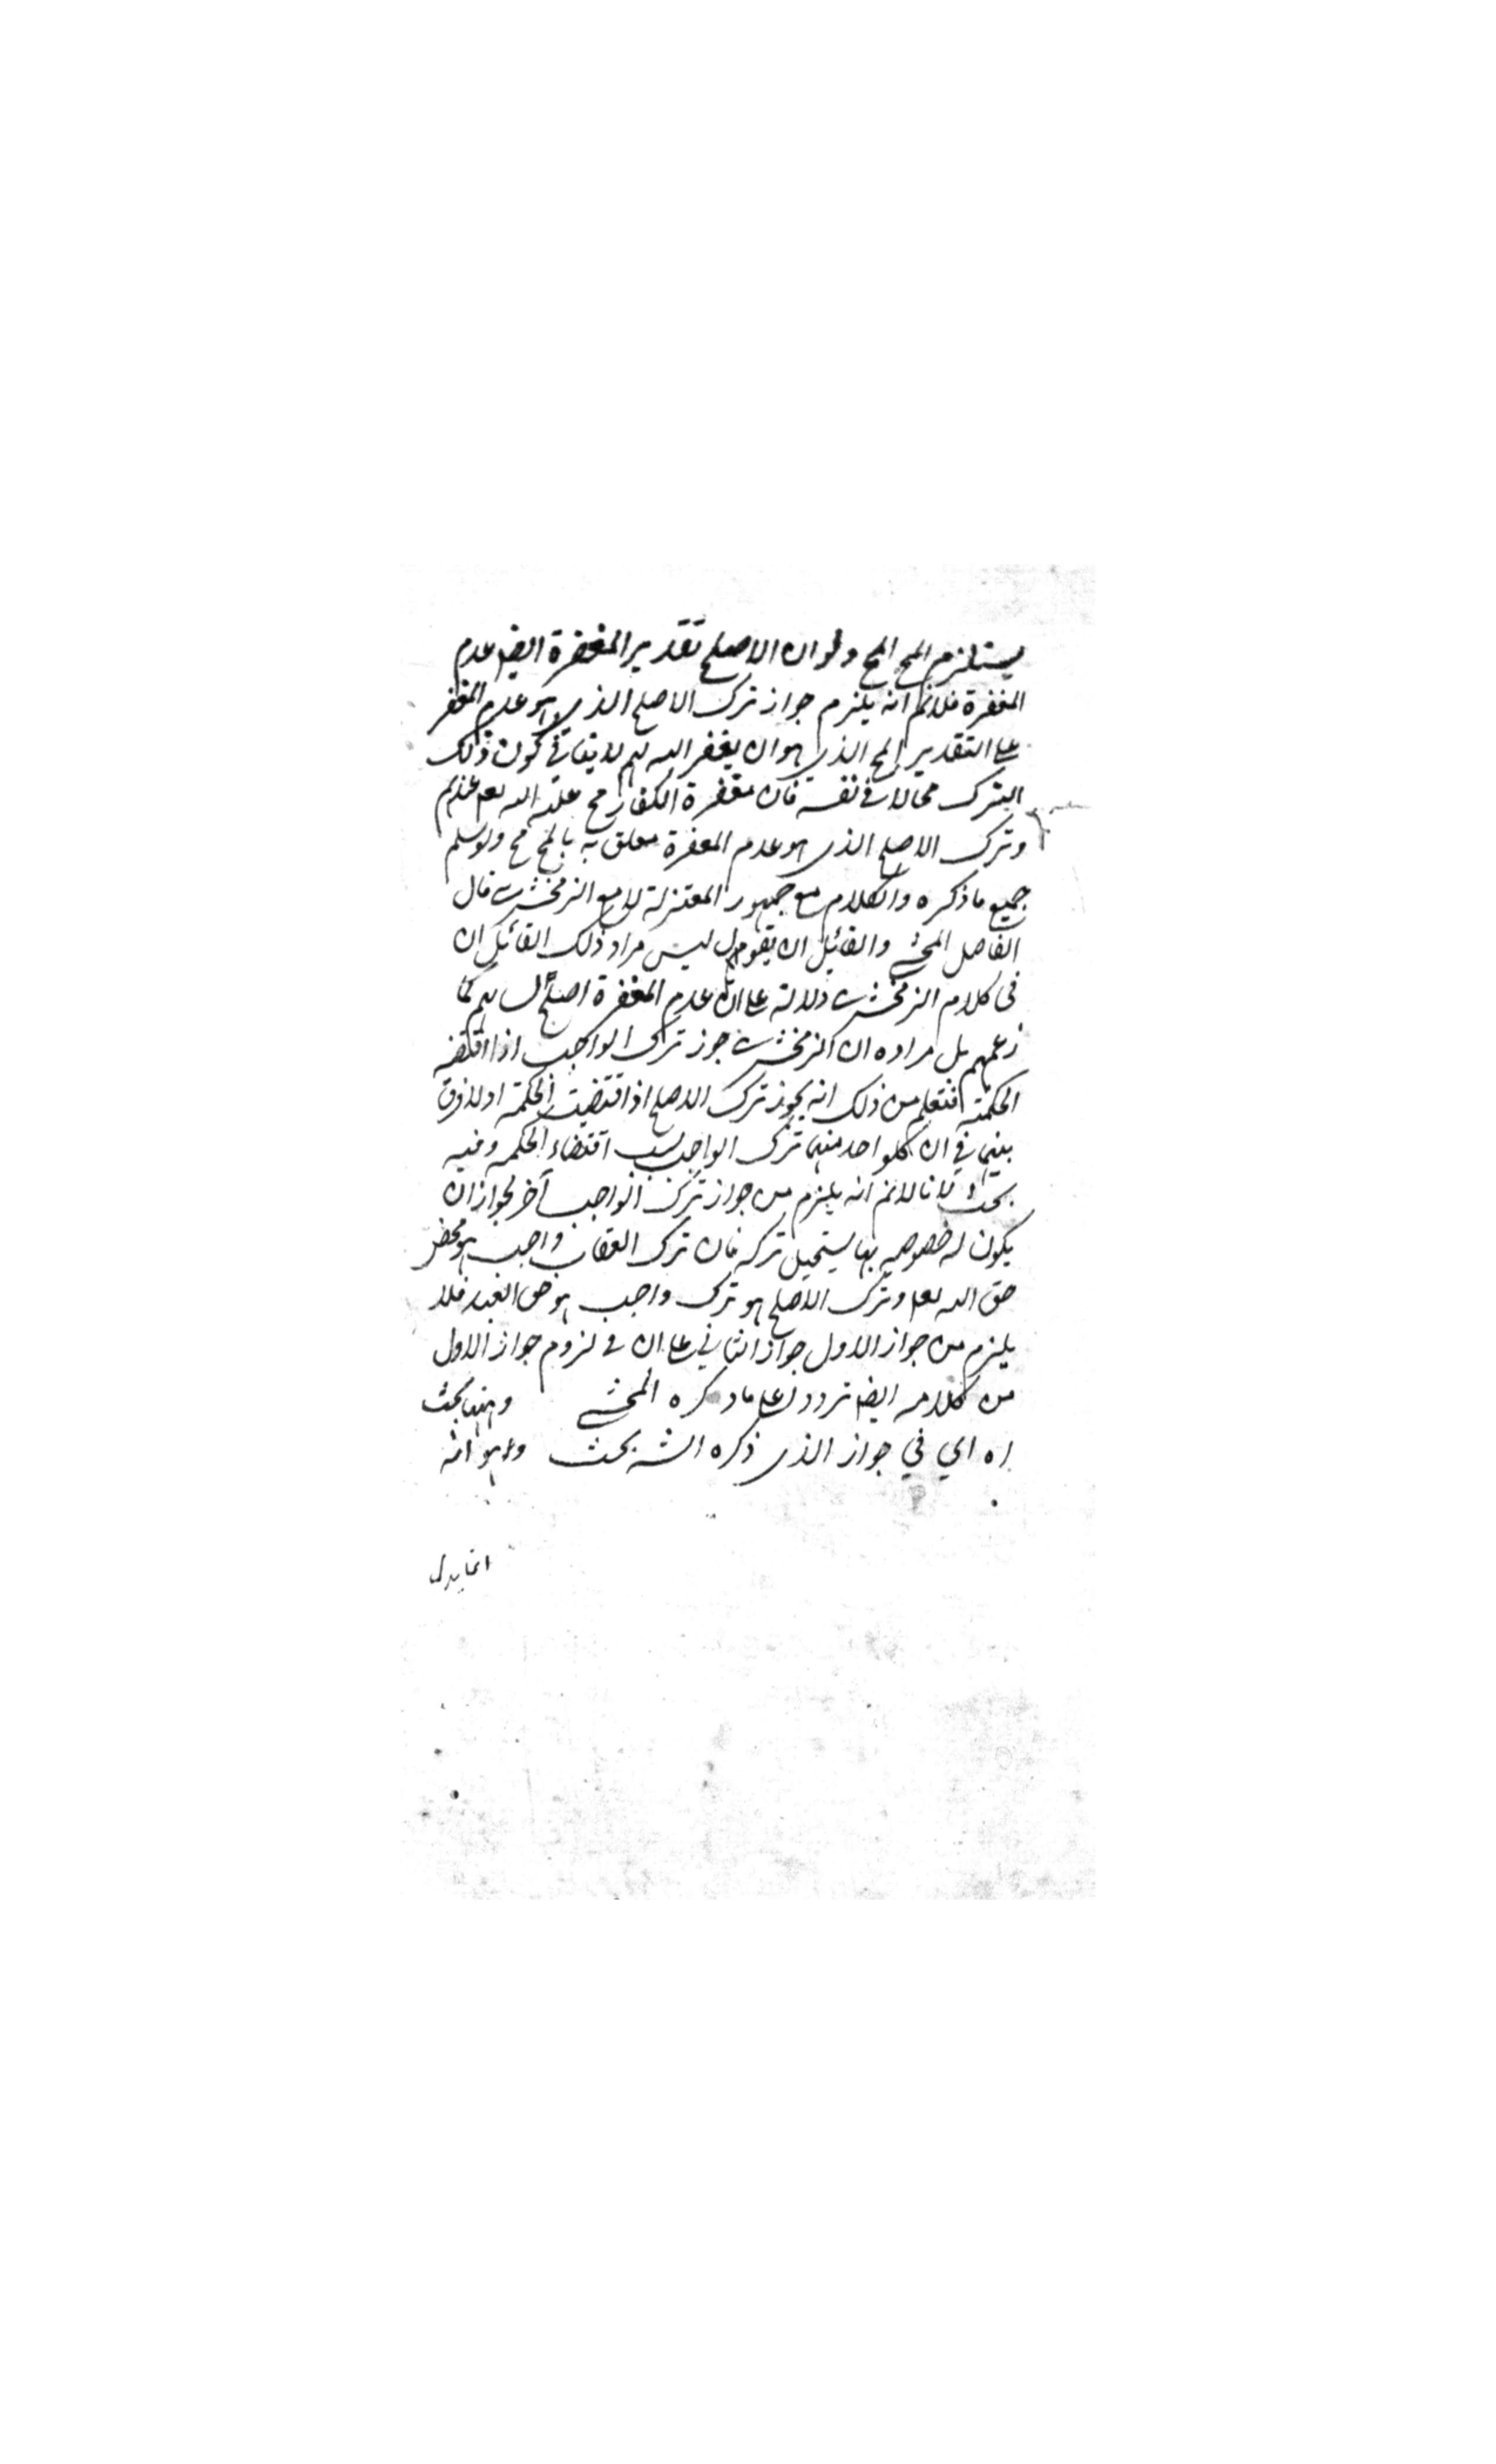 يستلزم المح المح ولو ان الاصلح تقدير المغفرة ايض عدم
المغفرة فلانم انه يلزم جواز ترك الاصلح الذي هو عدم المغفر
على التقدير المح الذي هو ان يغفر الله لهم لا ينافي كون ذلك
الترك محالا في نفسه فان مغفرة الكفار مح علقه الله تعم عندكم
وترك الاصلح الذي هو عدم المغفرة معلق به بالمح مح ولو سلم
جميع ما ذكره والكلام مع جمهور المعتزلة لا مع الزمخشري قال
الفاضل المحشي والقائل ان يقول ليس مراد ذلك القائل ان
في كلام الزمخشري دلالة على ان عدم المغفرة اصلح لهم كما
زعمهم بل مراده ان الزمخشري جوز ترك الواجب اذا اقتضه
الحكمة فنعلم من ذلك انه يجوز ترك الاصلح اذا اقتضيت الحكمة اذ لا فرق
بينهما في ان كلواحد منهما ترك الواجب بسبب اقتضاء الحكمة وفيه
بحث لانا لانم انه يلزم من جواز ترك الواجب آخر لجواز ان
يكون له خصوصيه بها يستحيل تركه فان ترك العقاب واجب هو محض
حق الله تعم وترك الاصلح هو ترك واجب هو حق العبد فلا
يلزم من جواز الاول جواز الثاني على ان في لزوم جواز الاول
من كلامه ايض تردد على ما ذكره المحشي وههنا بحث
اه اي في جواز الذي ذكره الش بحث وهو انه
انما يدل